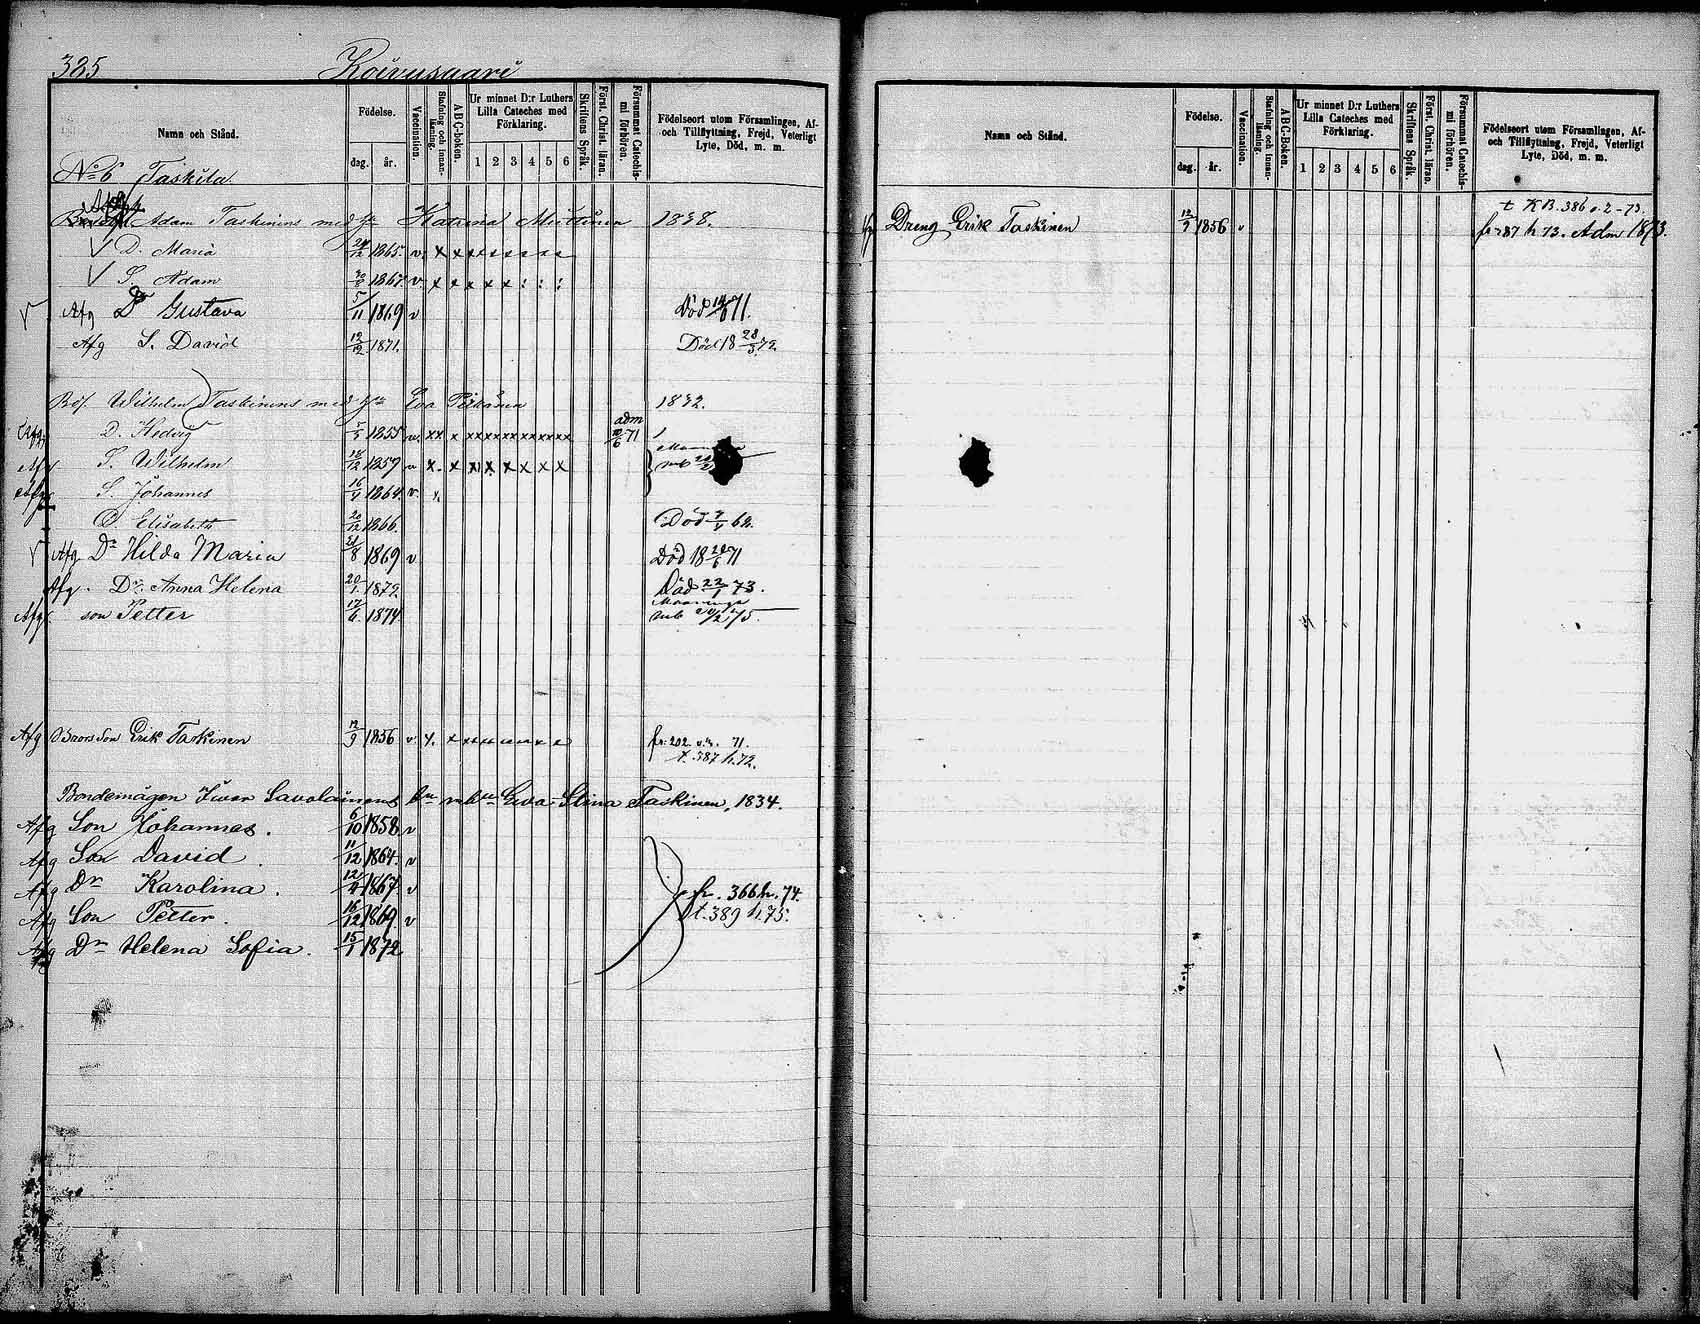 385 Koivusaari
Namn och Stånd.
Födelse.
dag. år.
Vaccination.
Stafning och innan-läsning.
ABC-boken.
Ur minnet D:r Luthers Lilla Cateches med Förklaring.
1 2 3 4 5 6
Skriftens Språk.
Först. Christ. läran.
Försummat Catechis-mi förhören.
Födelseort utom Församlingen, Af- och Tillflyttning, Frejd, Veterligt Lyte, Död, m. m.
No 6 Taskila
Adam Taskinens med Katrina Miettinen 1838.
D. Maria 12 1865. v. x x x x x x x x
S. Adam 1867. v. x x x x x : : :
Afg Dr Gustava 5/11 1869 v Död 71.
Afg S. David 12/12 1871. Död 18 28/3 72.
Wilhelm Taskinens med Eva Pitkänen 1832.
Afg D. Hedvig 1855 v. xx x xx xx xx xx xx xx adm 71
Afg S. Wilhelm 18/12 1857 v x. x x x x x x x
Afg S. Johannes 16/4 1864. v. x.
D. Elisabeth 20/12 1866. Död 68.
Afg Dr Hilda Maria 21/8 1869 v Död 18 71
Afg. Dr. Anna Helena 20/1. 1872. Död 22/1 73.
Afg. son Petter 17/6. 1874 Maaninga mb 75.
Afg Brors Son Erik Taskinen 12/9 1856 v. x. fr. 202 71.
t. 387 h. 72.
Bondemågen Iwar Savolainens Eva Stina Taskinen, 1834.
Afg Son Johannes. 6/10 1858 v
Afg Son David. 11/12 1864. v
Afg Dr Karolina. 12/4 1867. v fr. 366 h. 74.
Afg Son Petter. 16/12 1869. v t. 389 h. 75.
Afg Dr Helena Sofia. 15/1 1872
Namn och Stånd.
Födelse.
dag. år.
Vaccination.
Stafning och innan-läsning.
ABC-Boken.
Ur minnet D:r Luthers Lilla Cateches med Förklaring.
1 2 3 4 5 6
Skriftens Språk.
Först. Christ. läran.
Försummat Catechis-mi förhören.
Födelseort utom Församlingen, Af- och Tillflyttning, Frejd, Veterligt Lyte, Död, m. m.
t KB. 386 73.
Dreng Erik Taskinen 12/9 1856 v fr 87 h 73. Adm 1873.